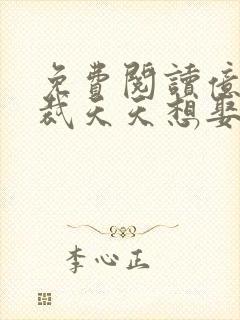 免費閱讀億
裁天天想娶
李心正